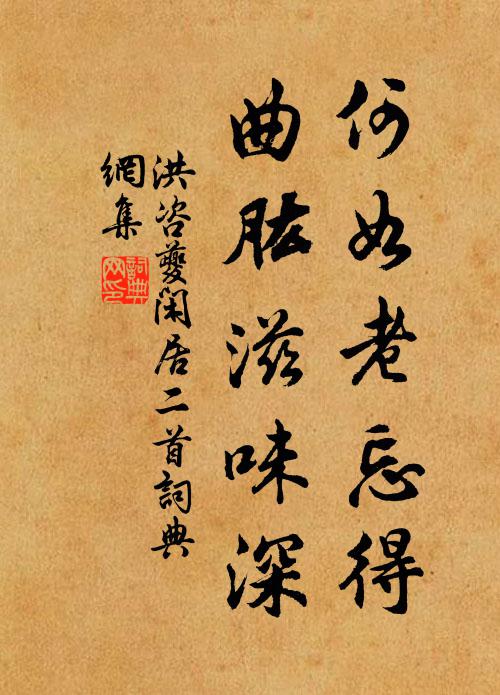 何如老忘得
曲肱滋味深
洪咨夔閑居二首詞典
網集
詞典
网印